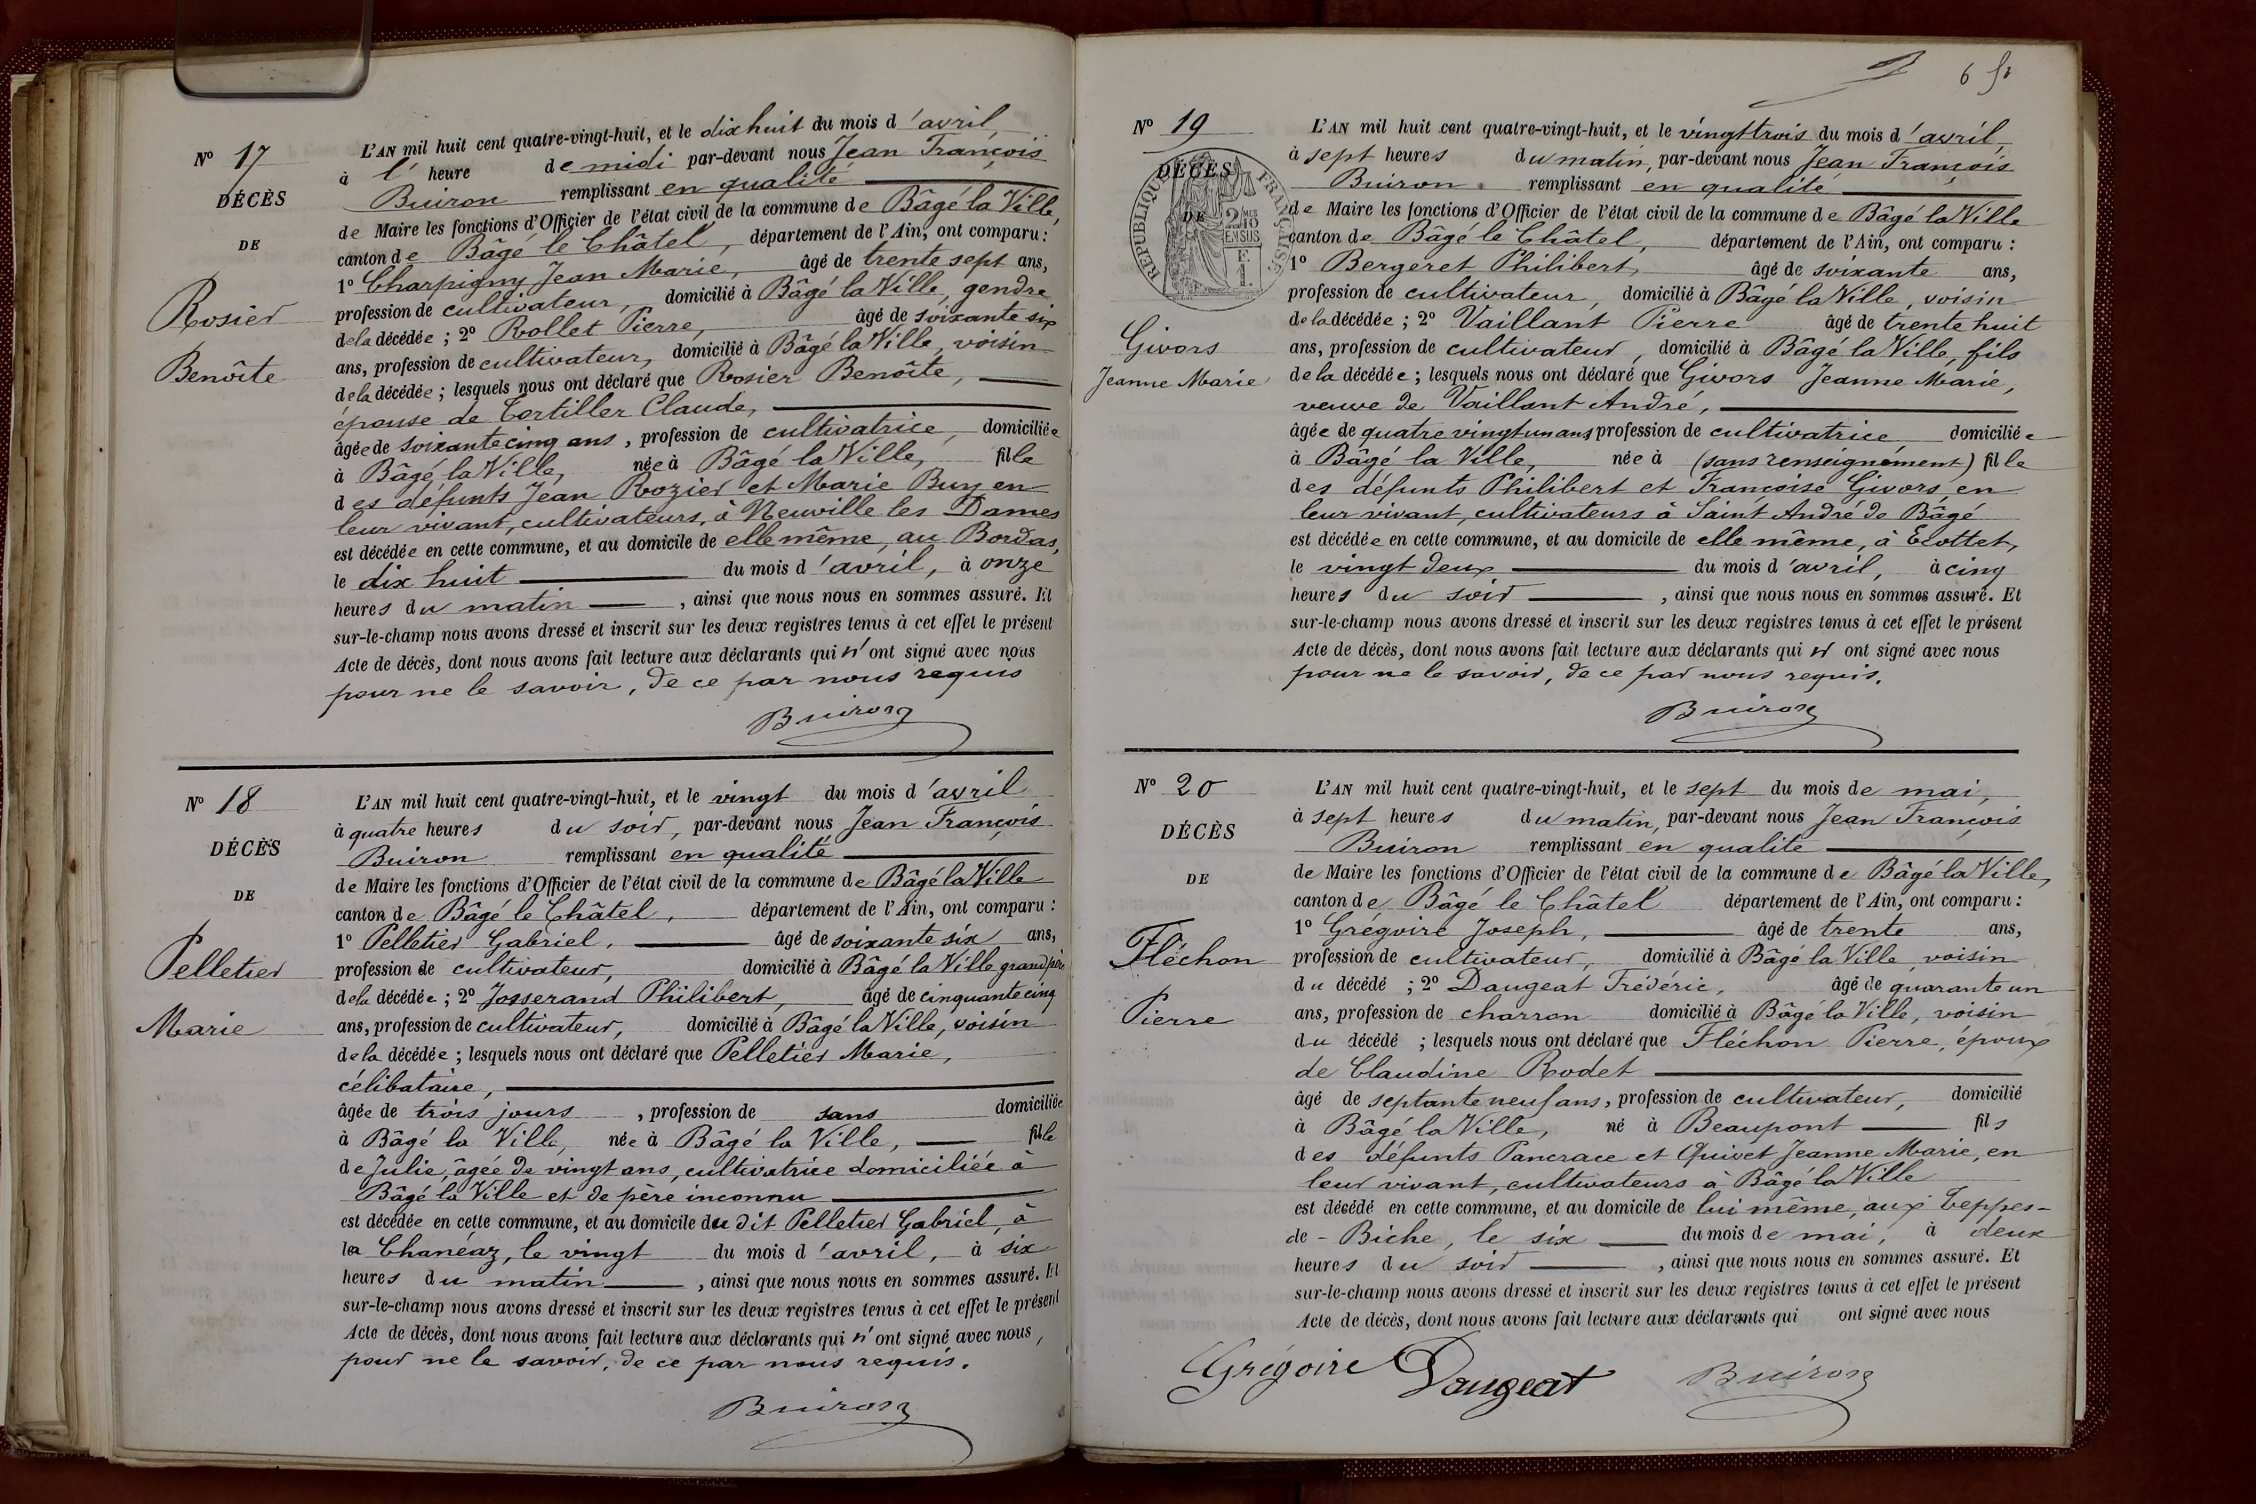 N° 17
DÉCÈS
DE
Rosier
Benoîte
L'AN mil huit cent quatre-vingt-huit, et le dix huit du mois d'avril,
à l' heure de midi par-devant nous Jean François
Buiron remplissant en qualité
de Maire les fonctions d'Officier de l'état civil de la commune de Bâgé la Ville,
canton de Bâgé le Châtel, département de l'Ain, ont comparu :
1° Charpigny Jean Marie, âgé de trente sept ans,
profession de cultivateur, domicilié à Bâgé la Ville, gendre
de la décédée ; 2° Rollet Pierre, âgé de soixante six
ans, profession de cultivateur, domicilié à Bâgé la Ville, voisin
de la décédée ; lesquels nous ont déclaré que Rosier Benoîte,
épouse de Tortiller Claude,
âgée de soixante cinq ans, profession de cultivatrice, domiciliée
à Bâgé la Ville, née à Bâgé la Ville, fille
des défunts Jean Rozier et Marie Buy en
leur vivant, cultivateurs, à Neuville les Dames
est décédée en cette commune, et au domicile de elle même, au Bordas,
le dix huit du mois d'avril, à onze
heures du matin, ainsi que nous nous en sommes assuré. Et
sur-le-champ nous avons dressé et inscrit sur les deux registres tenus à cet effet le présent
Acte de décès, dont nous avons fait lecture aux déclarants qui n'ont signé avec nous
pour ne le savoir, de ce par nous requis
Buiron
N° 18
DÉCÈS
DE
Pelletier
Marie
L'AN mil huit cent quatre-vingt-huit, et le vingt du mois d'avril
à quatre heures du soir, par-devant nous Jean François
Buiron remplissant en qualité
de Maire les fonctions d'Officier de l'état civil de la commune de Bâgé la Ville
canton de Bâgé le Châtel, département de l'Ain, ont comparu :
1° Pelletier Gabriel, âgé de soixante six ans,
profession de cultivateur, domicilié à Bâgé la Ville grand père
de la décédée ; 2° Josserand Philibert, âgé de cinquante cinq
ans, profession de cultivateur, domicilié à Bâgé la Ville, voisin
de la décédée ; lesquels nous ont déclaré que Pelletier Marie,
célibataire,
âgée de trois jours, profession de sans domiciliée
à Bâgé la Ville, née à Bâgé la Ville, fille
de Julie, âgée de vingt ans, cultivatrice domiciliée à
Bâgé la Ville et de père inconnu
est décédée en cette commune, et au domicile du dit Pelletier Gabriel, à
la Chanéaz, le vingt du mois d'avril, à six
heures du matin, ainsi que nous nous en sommes assuré. Et
sur-le-champ nous avons dressé et inscrit sur les deux registres tenus à cet effet le présent
Acte de décès, dont nous avons fait lecture aux déclarants qui n'ont signé avec nous,
pour ne le savoir, de ce par nous requis.
Buiron
6
N° 19
DÉCÈS
DE
RÉPUBLIQUE FRANÇAISE
2/10 EN SUS
Givors
Jeanne Marie
L'AN mil huit cent quatre-vingt-huit, et le vingt trois du mois d'avril,
à sept heures du matin, par-devant nous Jean François
Buiron remplissant en qualité
de Maire les fonctions d'Officier de l'état civil de la commune de Bâgé la Ville
canton de Bâgé le Châtel, département de l'Ain, ont comparu :
1° Bergeret Philibert, âgé de soixante ans,
profession de cultivateur, domicilié à Bâgé la Ville, voisin
de la décédée ; 2° Vaillant Pierre âgé de trente huit
ans, profession de cultivateur, domicilié à Bâgé la Ville, fils
de la décédée ; lesquels nous ont déclaré que Givors Jeanne Marie,
veuve de Vaillant André,
âgée de quatre vingt un ans profession de cultivatrice domiciliée
à Bâgé la Ville, née à (sans renseignement) fille
des défunts Philibert et Françoise Givors, en
leur vivant, cultivateurs à Saint André de Bâgé
est décédée en cette commune, et au domicile de elle même, à Ecottet,
le vingt deux du mois d'avril, à cinq
heures du soir, ainsi que nous nous en sommes assuré. Et
sur-le-champ nous avons dressé et inscrit sur les deux registres tenus à cet effet le présent
Acte de décès, dont nous avons fait lecture aux déclarants qui n' ont signé avec nous
pour ne le savoir, de ce par nous requis.
Buiron
N° 20
DÉCÈS
DE
Fléchon
Pierre
L'AN mil huit cent quatre-vingt-huit, et le sept du mois de mai,
à sept heures du matin, par-devant nous Jean François
Buiron remplissant en qualité
de Maire les fonctions d'Officier de l'état civil de la commune de Bâgé la Ville,
canton de Bâgé le Châtel département de l'Ain, ont comparu :
1° Grégoire Joseph, âgé de trente ans,
profession de cultivateur, domicilié à Bâgé la Ville, voisin
du décédé ; 2° Daugeat Frédéric, âgé de quarante un
ans, profession de charron domicilié à Bâgé la Ville, voisin
du décédé ; lesquels nous ont déclaré que Fléchon Pierre, époux
de Claudine Rodet
âgé de septante neuf ans, profession de cultivateur, domicilié
à Bâgé la Ville, né à Beaupont fils
des défunts Pancrace et Quivet Jeanne Marie, en
leur vivant, cultivateurs à Bâgé la Ville
est décédé en cette commune, et au domicile de lui même, aux Teppes-
de-Biche, le six du mois de mai, à deux
heures du soir, ainsi que nous nous en sommes assuré. Et
sur-le-champ nous avons dressé et inscrit sur les deux registres tenus à cet effet le présent
Acte de décès, dont nous avons fait lecture aux déclarants qui ont signé avec nous
Grégoire Daugeat Buiron